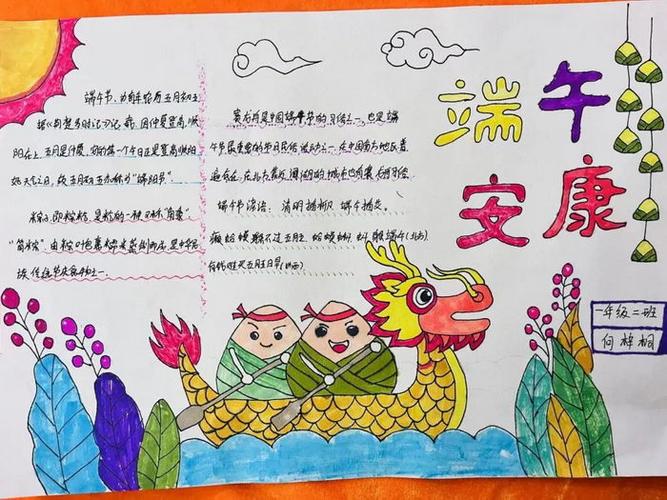 端午安康
端午节,为每年农历五月初五
据《荆楚岁时记》记载,因仲夏登高,顺
阳在上,五月是仲夏,它的第一个午日正是登高顺阳
好天气之日,故五月初五亦称为"端阳节"
粽子,即粽粒,是粽的一种,又称"角黍"
"筒粽",由粽叶包裹糯米蒸制而成,是中华民
族传统节庆食物之一
赛龙舟是中国端午节的习俗之一,也是端
午节最重要的节日民俗活动之一,在中国南方地区普
遍存在,在北方靠近
端午节谚语:清明插柳,端午插艾。
癞蛤蟆躲不过五月五
一年级二班
何梓桐